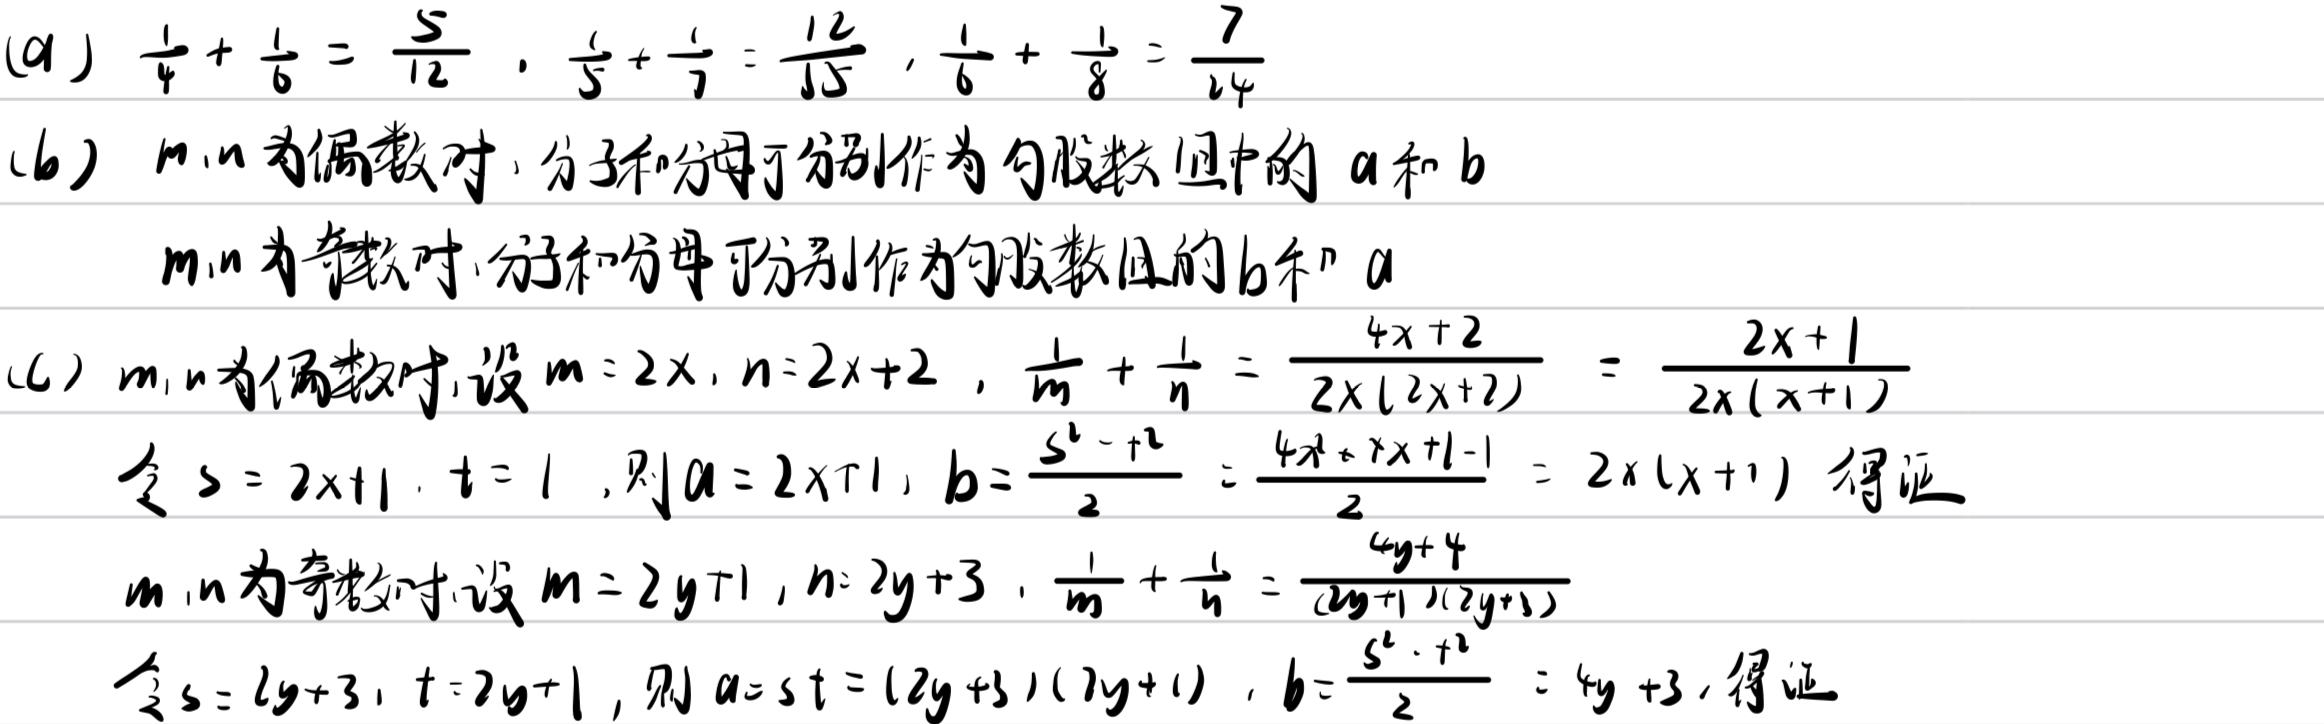 (a) 1/4 + 1/6 = 5/12 , 1/5 + 1/7 = 12/15 , 1/6 + 1/8 = 7/24
(b) m,n为偶数时,分子和分母可分别作为勾股数组中的 a 和 b
m,n为奇数时,分子和分母可分别作为勾股数组的b和 a
(c) m,n为偶数时,设 m = 2x, n = 2x+2 , 1/m + 1/n = (4x+2)/(2x(2x+2)) = (2x+1)/(2x(x+1))
令 s = 2x+1, t = 1 ,则 a = 2x+1, b = (s²-t²)/2 = (4x²+4x+1-1)/2 = 2x(x+1) 得证
m,n为奇数时,设 m = 2y+1, n = 2y+3 , 1/m + 1/n = (4y+4)/((2y+1)(2y+3))
令 s = 2y+3, t = 2y+1 ,则 a = st = (2y+3)(2y+1) , b = (s²-t²)/2 = 4y+3,得证